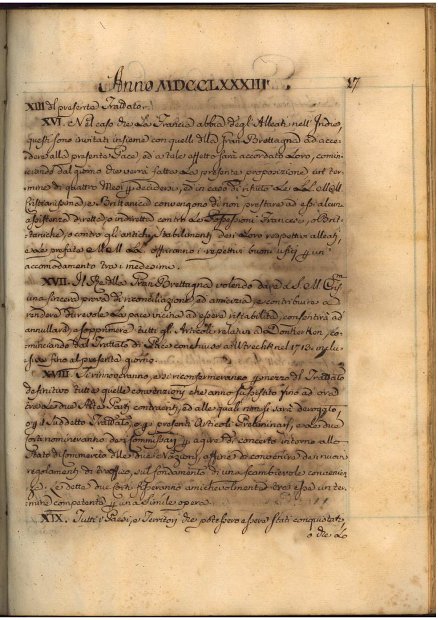 Anno MDCCLXXXIII. 17
XIII del presente Trattato.
XVI. Nel caso che la Francia abbia degli Alleati nell'Indie,
questi sono invitati insieme con quelli della Gran Brettagna ad acce-
dere alla presente Pace, ed a tale effetto sarà accordato loro, comin-
ciando dal giorno che verrà fatta la presente proposizione un ter-
mine di quattro Mesi a decidere, ed in caso di rifiuto le LL. MM.
Cristianissima e Brittanica convengono di non prestare ad essi alcun'
assistenza diretta, o indiretta contro le Possessioni Francesi, o Brit-
taniche, o contro gli antichi stabilimenti dei loro respettivi alleati,
e le prefate MM. LL. offriranno i respettivi buoni ufizj per un
accomodamento tra i medesimi.
XVII. Il Re della Gran Brettagna volendo dare a S. M. Cris.ma
una sincera prova di reconciliazione, ed amicizia, e contribuire a
rendere durevole la pace vicina ad essere ristabilita, consentirà ad
annullare, a sopprimere tutti gli Articoli relativi a Donkerken, co-
minciando dal Trattato di Pace conchiuso a Utrecht nel 1713. inclu-
sive fino al presente giorno.
XVIII. Si rinnoveranno, e si riconfermeranno per mezzo del Trattato
definitivo tutte quelle convenzioni che anno sussistito fino ad ora
tra le due Alte Parti contraenti, ed alle quali non si sarà derogato,
o per il suddetto Trattato, o per i presenti Articoli Preliminari, e le due
Corti nomineranno dei Commissarj per agire di concerto intorno allo
Stato di Commercio delle due Nazioni, affine di convenire dei nuovi
regolamenti di traffico, sul fondamento di una scambievole convenien-
za. Le dette due Corti fisseranno amichevolmente tra esse un ter-
mine competente per una simile opera.
XIX. Tutti i Paesi, e Territorj che potessero essere stati conquistati,
o che lo